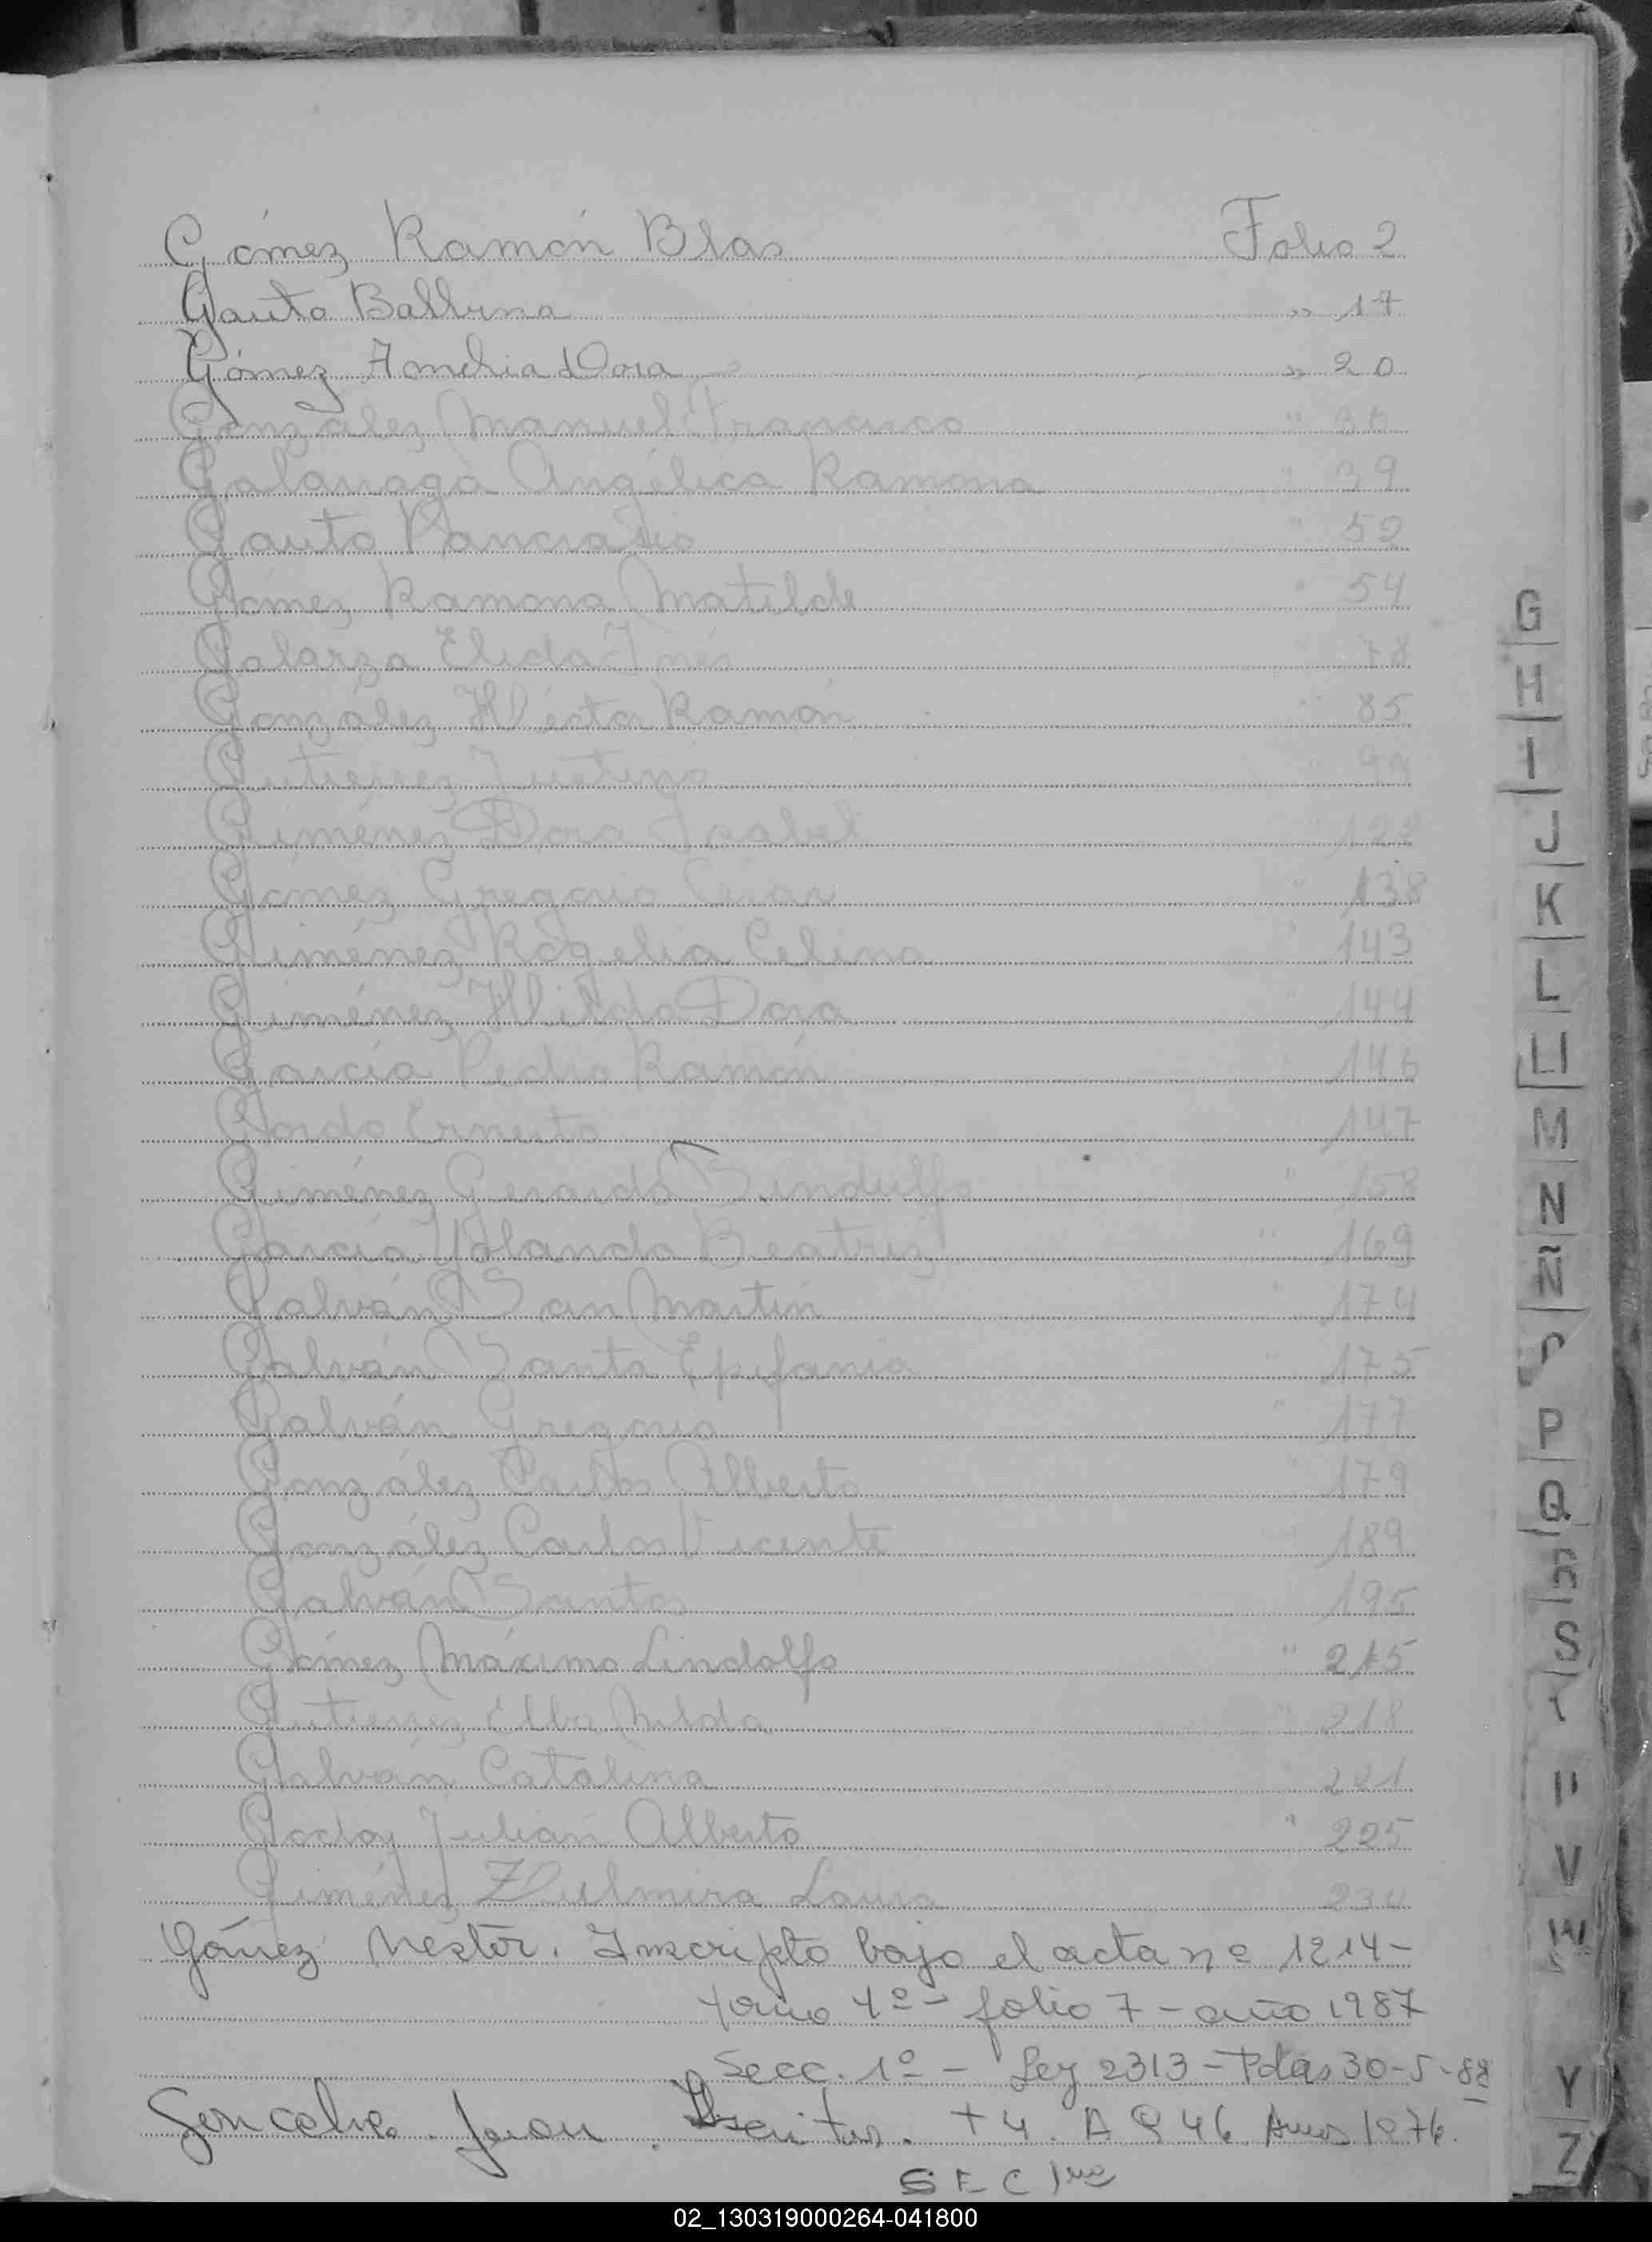 Gómez Ramón Blas Folio 2
Gauto Balbina " 17
Gómez Amelia Dora " 20
González Manuel Francisco " 30
Galarraga Angélica Ramona " 39
Gauto Pancracio " 52
Gómez Ramona Matilde " 54
Galarza Elida Inés " 78
González Héctor Ramón " 85
Gutierrez Justina " 99
Giménez Dora Isabel " 122
Gómez Gregorio Cesar " 138
Giménez Rogelia Celina " 143
Giménez Hilda Dora " 144
García Pedro Ramón " 146
Ernesto 147
Giménez Gerardo Sindulfo " 158
García Yolanda Beatriz " 169
Galván San Martín " 174
Galván Santa Epifania " 175
Galván Gregorio " 177
González Carlos Alberto " 179
González Carlos Vicente " 189
Galván Santos 195
Gómez Máximo Lindolfo " 215
Gutierrez Elba Nilda " 218
Galván Catalina 221
Godoy Julián Alberto " 225
Giménez Zulmira Laura
Gómez Nestor. Inscripto bajo el acta nº 1214-
tomo 4º- folio 7 - año 1987
Secc. 1º - Ley 2313 - Pdas 30-5-88
Juan . T 4. A 946 1976.
SEC 1ra
G
H
I
J
K
L
LL
M
N
Ñ
P
Q
R
S
U
V
W
Y
Z
02_130319000264-041800